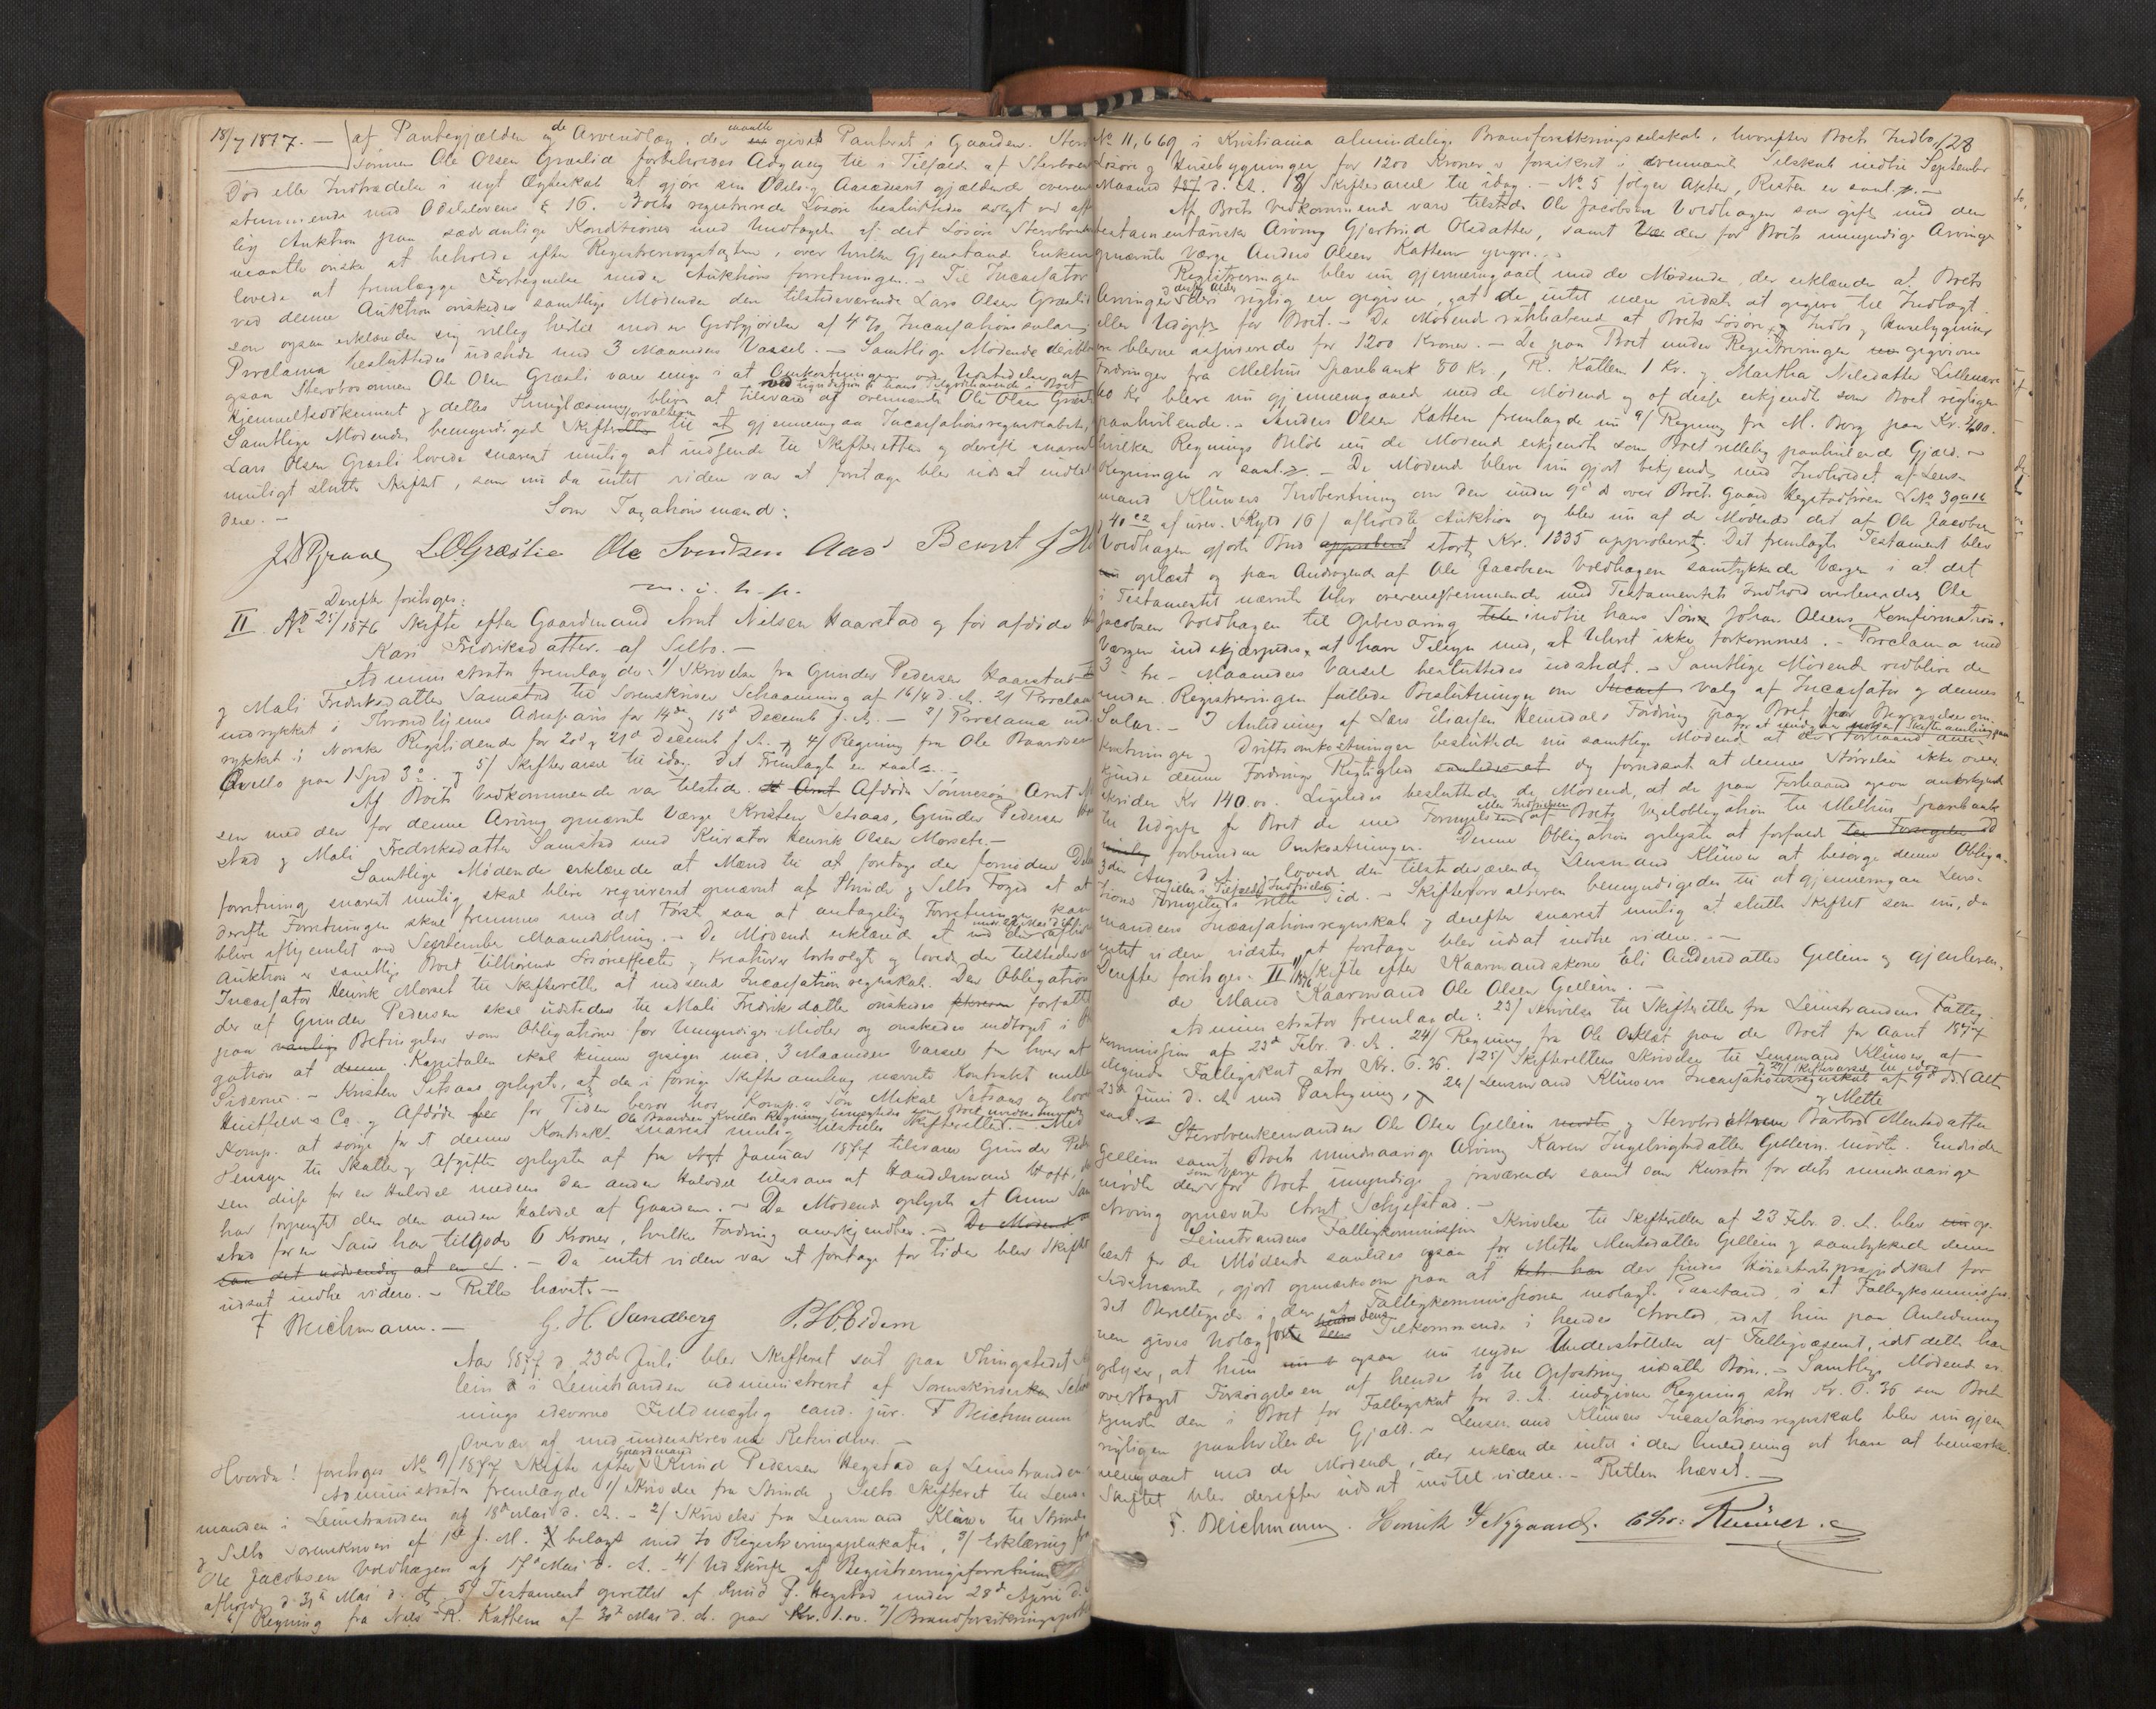 18/7 1877. — af Pantegjælden og de Arvendlæg, der maatte givet Panteret i Gaarden. Sterv
sønnen Ole Olsen Græslid forbeholdes Adgang til i Tilfælde af Sterboen
Død eller Indtrædelse i nyt Ægteskab at gjøre sin Odels og Aasædesret gjældende overens
stemmende med Odelslovens § 16. Boets registrerede Løsøre besluttedes solgt ved offent
lig Auktion paa sædvanlige Konditioner med Undtagelse af det Løsøre Stervboenken
maatte ønske at beholde efter Registreringstaxten, over hvilke Gjenstand Enken
lovede at fremlægge Fortegnelse under Auktions forretningen. — Til Incassator
ved denne Auktion ønskedes samtlige Mødende den tilstedeværende Lars Olsen Græslid
som ogsaa erklærede sig villig hertil mod en Godtgjørelse af 4 % Incassations salær.
Proclama besluttedes udstedt med 3 Maaneders Varsel. — Samtlige Mødende derib
ogsaa Stervbosønnen Ole Olsen Græsli vare enige i at Omkostningen ved Udstedelse af
Hjemmelsdokument og dettes Thinglæsning bliver at tilsvare af ovennævnte Ole Olsen Græsli
ved Liqvidation i hans Tilgodehavende i Boet
Samtlige Mødende bemyndigede Skifteforvalteren til at gjennemgaa Incassationsregnskabet,
Lars Olsen Græsli lovede snarest mulig at indsende til Skifteretten og derefter snarest
muligt slutte Skiftet, som nu da intet videre var at foretage blev udsat indtil
dere. —
Som Taxationsmænd:
L.O. Græslie Ole Svendsen Aas Bernt J.
m. i. h. p.
Derefter foretoges:
II. No 25/1876 Skifte efter Gaardmand Arnt Nilsen Haarstad og før afdøde
Kari Fredriksdatter af Selbo. —
Administrator fremlagde: 1/ Skrivelse fra Gunder Pedersen Haarstad
og Mali Fredriksdatter Samstad til Sorenskriver Schaanning af 16/4 d. A. 2/ Proclama
indrykket i Throndhjems Adresseavis for 14de og 15de Decemb f. A. — 3/ Proclama ind
rykket i Norske Rigstidende for 20de og 21de Decemb f. A. og 4/ Regning fra Ole Baardsen
Qvello paa 1 Spd 3 . og 5/ Skiftevarsel til idag. Det Fremlagte er saal.
Af Boets Vedkommende var tilstede. Afdøde Sønnesøn Arnt
sen med den for denne Arving opnævnte Værge Kristen Setsaas, Gunder Pedersen
stad og Mali Fredriksdatter Samstad med Kurator Henrik Olsen Morset. —
Samtlige Mødende erklærede at Mænd til at foretage den fornødne
forretning snarest mulig skal blive reqvireret opnævnt af Strinde og Selbo Foged at
derefter Forretningen skal fremmes med det Første saa at antagelig Forretningen kan
blive afhjemlet ved September Maanedsthing. — De Mødende erklærede at ved
Auktion er samtlige Boet tilhørende Løsøreffecter og Kreaturer bortsolgt og lovede den tilstede
Incassator Henrik Morset til Skifteretten at indsende Incassationsregnskab. Den Obligation
der af Gunder Pedersen skal udstedes til Mali Fredriksdatter ønskedes forfattet
paa Betingelser som Obligationer for Umyndiges Midler og ønskedes indtaget i
gation at Kapitalen skal kunne opsiges med 3 Maaneders Varsel fra hver af
Siderne. — Kristen Setsaas oplyste, at den i forrige Skiftesamling nævnte Kontrakt mellem
Huitfeldt & Co. og Afdøde for Tiden beror hos Komp.s Søn Mikal Setsaas og lovede
Komp. at sørge for at denne Kontrakt snarest mulig tilstilles Skifteretten. — Med
Ole Baardsen Kvellos Regning benegtedes som Boet uvedkommende
Hensyn til Skatter og Afgifter oplystes af fra Januar 1877 tilsvares Gunder Peder
sen disse for en Halvdel medens den anden Halvdel tilsvares af Handelsmand Hoff,
har forpagtet den den anden Halvdel af Gaarden. — De Mødende oplyste at Anne
stad for en Sau har tilgode 6 Kroner, hvilken Fordring anerkjendtes. —
Da intet videre var at foretage for Tiden blev Skiftet
udsat indtil videre. — Retten hævet. —
F Deichmann. — G. H. Sandberg P. H. Eidem
Aar 1877 d. 23de Juli blev Skifteret sat paa Thingstedet
lein i Leinstranden administreret af Sorenskriver Schaan
nings edsvorne Fuldmægtig cand. jur. F Deichmann
Overvær af medunderskrevne Retsvidner. —
Hvorda! foretoges No 9/1877 Skifte efter Gaardmand Knud Pedersen Hegstad af Leinstranden
Administrator fremlagde 1/ Skrivelse fra Strinde og Selbo Skifteret til Lens
manden i Leinstranden af 18de Mai d. A. — 2/ Skrivelse fra Lensmand Klüwer til Strinde
og Selbo Sorenskriveri af 1ste f. M. belagt med to Registreringsplakater, 3/ Erklæring fra
Ole Jacobsen Voldhagen af 17de Mai d. A. — 4/ Udskrift af Registreringsforretning
afholdt d. 30te Mai d. A. 5/ Testament oprettet af Knud P. Hegstad under 28de April d.
6/ Regning fra Nils R. Kattem af 30te Mai d. A. paa Kr. 1.00. 7/ Brandforsikringspolice
128
No 11,669 i Kristiania almindelige Brandforsikringsselskab, hvorefter Boets Indbo,
Løsøre og Husebygninger for 1200 Kroner er forsikret i ovennævnte Selskab indtil September
Maaned d. A. 8/ Skiftevarsel til idag. — No 5 følger Akten, Resten er saal. —
Af Boets Vedkommende vare tilstede Ole Jacobsen Voldhagen som gift med den
testamentariske Arving Gjertrud Olsdatter, samt den for Boets umyndige Arvinge
opnævnte Værge Anders Olsen Kattem yngre. —
Registreringen blev nu gjennemgaaet med de Mødende, der erklærede at Boets
Arvinger og deres Alder rigtig er opgivne, at de intet mere vidste at opgive til Indtægt
eller Udgift for Boet. — De Mødende vedtoges at Boets Løsøre, og Indbo og Husebygninger
blevne assurerede for 1200 Kroner. — De paa Boet under Registreringen opgivne
Fordringer fra Melhus Sparebank 80 Kr., R. Kattem 1 Kr. og Martha Nilsdatter
40 Kr bleve nu gjennemgaaede med de Mødende og af disse erkjendt som Boet rigtigen
paahvilende. — Anders Olsen Kattem fremlagde nu 9/ Regning fra M. Borg paa Kr. 4,00.
hvilken Regnings Beløb nu de Mødende erkjendte som Boet rettelig paahvilende Gjæld. —
Regningen er saal. — De Mødende bleve nu gjort bekjendt med Indholdet af Lens
mand Klüwers Indberetning om den under 9de ds over Boets Gaard Hegstadtrøen LNo 39
af urev. Skyld 16 / afholdte Auktion og blev nu af de Mødende det af Ole Jacobsen
Voldhagen gjorte Bud stort Kr. 1335 approberet. Det fremlagte Testament blev
oplæst og paa Andragende af Ole Jacobsen Voldhagen samtykkede Værgen i at det
i Testamentet nævnte Uhr overensstemmende med Testamentets Indhold overleveredes Ole
Jacobsen Voldhagen til Opbevaring indtil hans Søns Johan Olsens Konfirmation.
Værgen indskjærpedes at have Tilsyn med, at Uhret ikke forkommes. — Proclama med
3 - tre - Maaneders Varsel besluttedes udstedt. — Samtlige Mødende vedbleve de
under Registreringen fattede Beslutninger om Valg af Incassator og dennes
Salær. — I Anledning af Lars Elnarsen Hemdals Fordring paa Boet for Begravelsesom-
kostninger og Driftsomkostninger besluttede nu samtlige Mødende at paa Forhaand aner-
kjende denne Fordrings Rigtighed og forudsat at dennes Størrelse ikke over
skrider Kr 140.00. Ligeledes besluttede de Mødende, at de paa Forhaand ogsaa anerkjendte
til Udgift for Boet de med Fornyelsen eller Indfrielsen af Boets Vexelobligation til Melhus Sparebank
forbundne Omkostninger. Denne Obligation oplystes at forfalde
3die Aug. d. A. og lovede den tilstedeværende Lensmand Klüwer at besørge denne Obliga-
tions Fornyelse eller i Tilfælde Indfrielse i rette Tid. — Skifteforvalteren bemyndigedes til at gjennemgaa Lens-
mandens Incassationsregnskab og derefter snarest mulig at slutte Skiftet som nu, da
intet videre vidstes at foretage blev udsat indtil videre. —
Derefter foretoges: II Skifte efter Kaarmandskone Eli Andersdatter Gellein og gjenleven-
de Mand Kaarmand Ole Olsen Gellein. —
Administrator fremlagde: 23/ Skrivelse til Skifteretten fra Leinstrandens Fattig-
kommission af 23de Febr. d. A. 24/ Regning fra Ole Oskløst paa de Boet for Aaret 1877
Fattigskat stor Kr. 6.36. 25/ Skifterettens Skrivelse til Lensmand Klüwer af
23de Juni d. A. med Paategning, 26/ Lensmand Klüwers Incassationsregnskab af 9de ds 27/ Skiftevarsel til idag Alt
saal.
Stervboenkemanden Ole Olsen Gellein og Stervbodattrene Barbro og Mette Mentsdatter
Gellein samt Boets mindreaarige Arving Karen Ingebrigtsdatter Gellein mødte. Endvidere
mødte den som Værge for Boets umyndige og fraværende samt som Kurator for dets mindreaarige
Arving opnævnte Arnt Schjefstad. —
Leinstrandens Fattigkommissions Skrivelse til Skifteretten af 23 Febr. d. A. blev op-
læst for de Mødende saaledes ogsaa for Mette Mentsdatter Gellein og samtykkede denne
sidstnævnte, gjort opmærksom paa at der findes Høiesteretspræjudikat for
det Berettigede i den af Fattigkommissionen nedlagte Paastand, i at Fattigkommissio-
nen gives Udlæg for dens Tilkommende i hendes Arvelod, idet hun paa Anledning
oplyser, at hun ogsaa nu nyder Understøttelse af Fattigvæsenet, idet dette har
overtaget Forsørgelsen af hendes to til Opfostring udsatte Børn. — Samtlige Mødende er-
kjendte den i Boet for Fattigskat for d. A. indgivne Regning stor Kr. 6.36 som Boet
rigtigen paahvilende Gjæld. — Lensmand Klüwers Incassationsregnskab blev nu gjen-
nemgaaet med de Mødende, der erklærede intet i den Anledning at have at bemærke.
Skiftet blev derefter udsat indtil videre. — Retten hævet. —
F. Deichmann. Henrik J Nygaard. Chr: Klüwer.